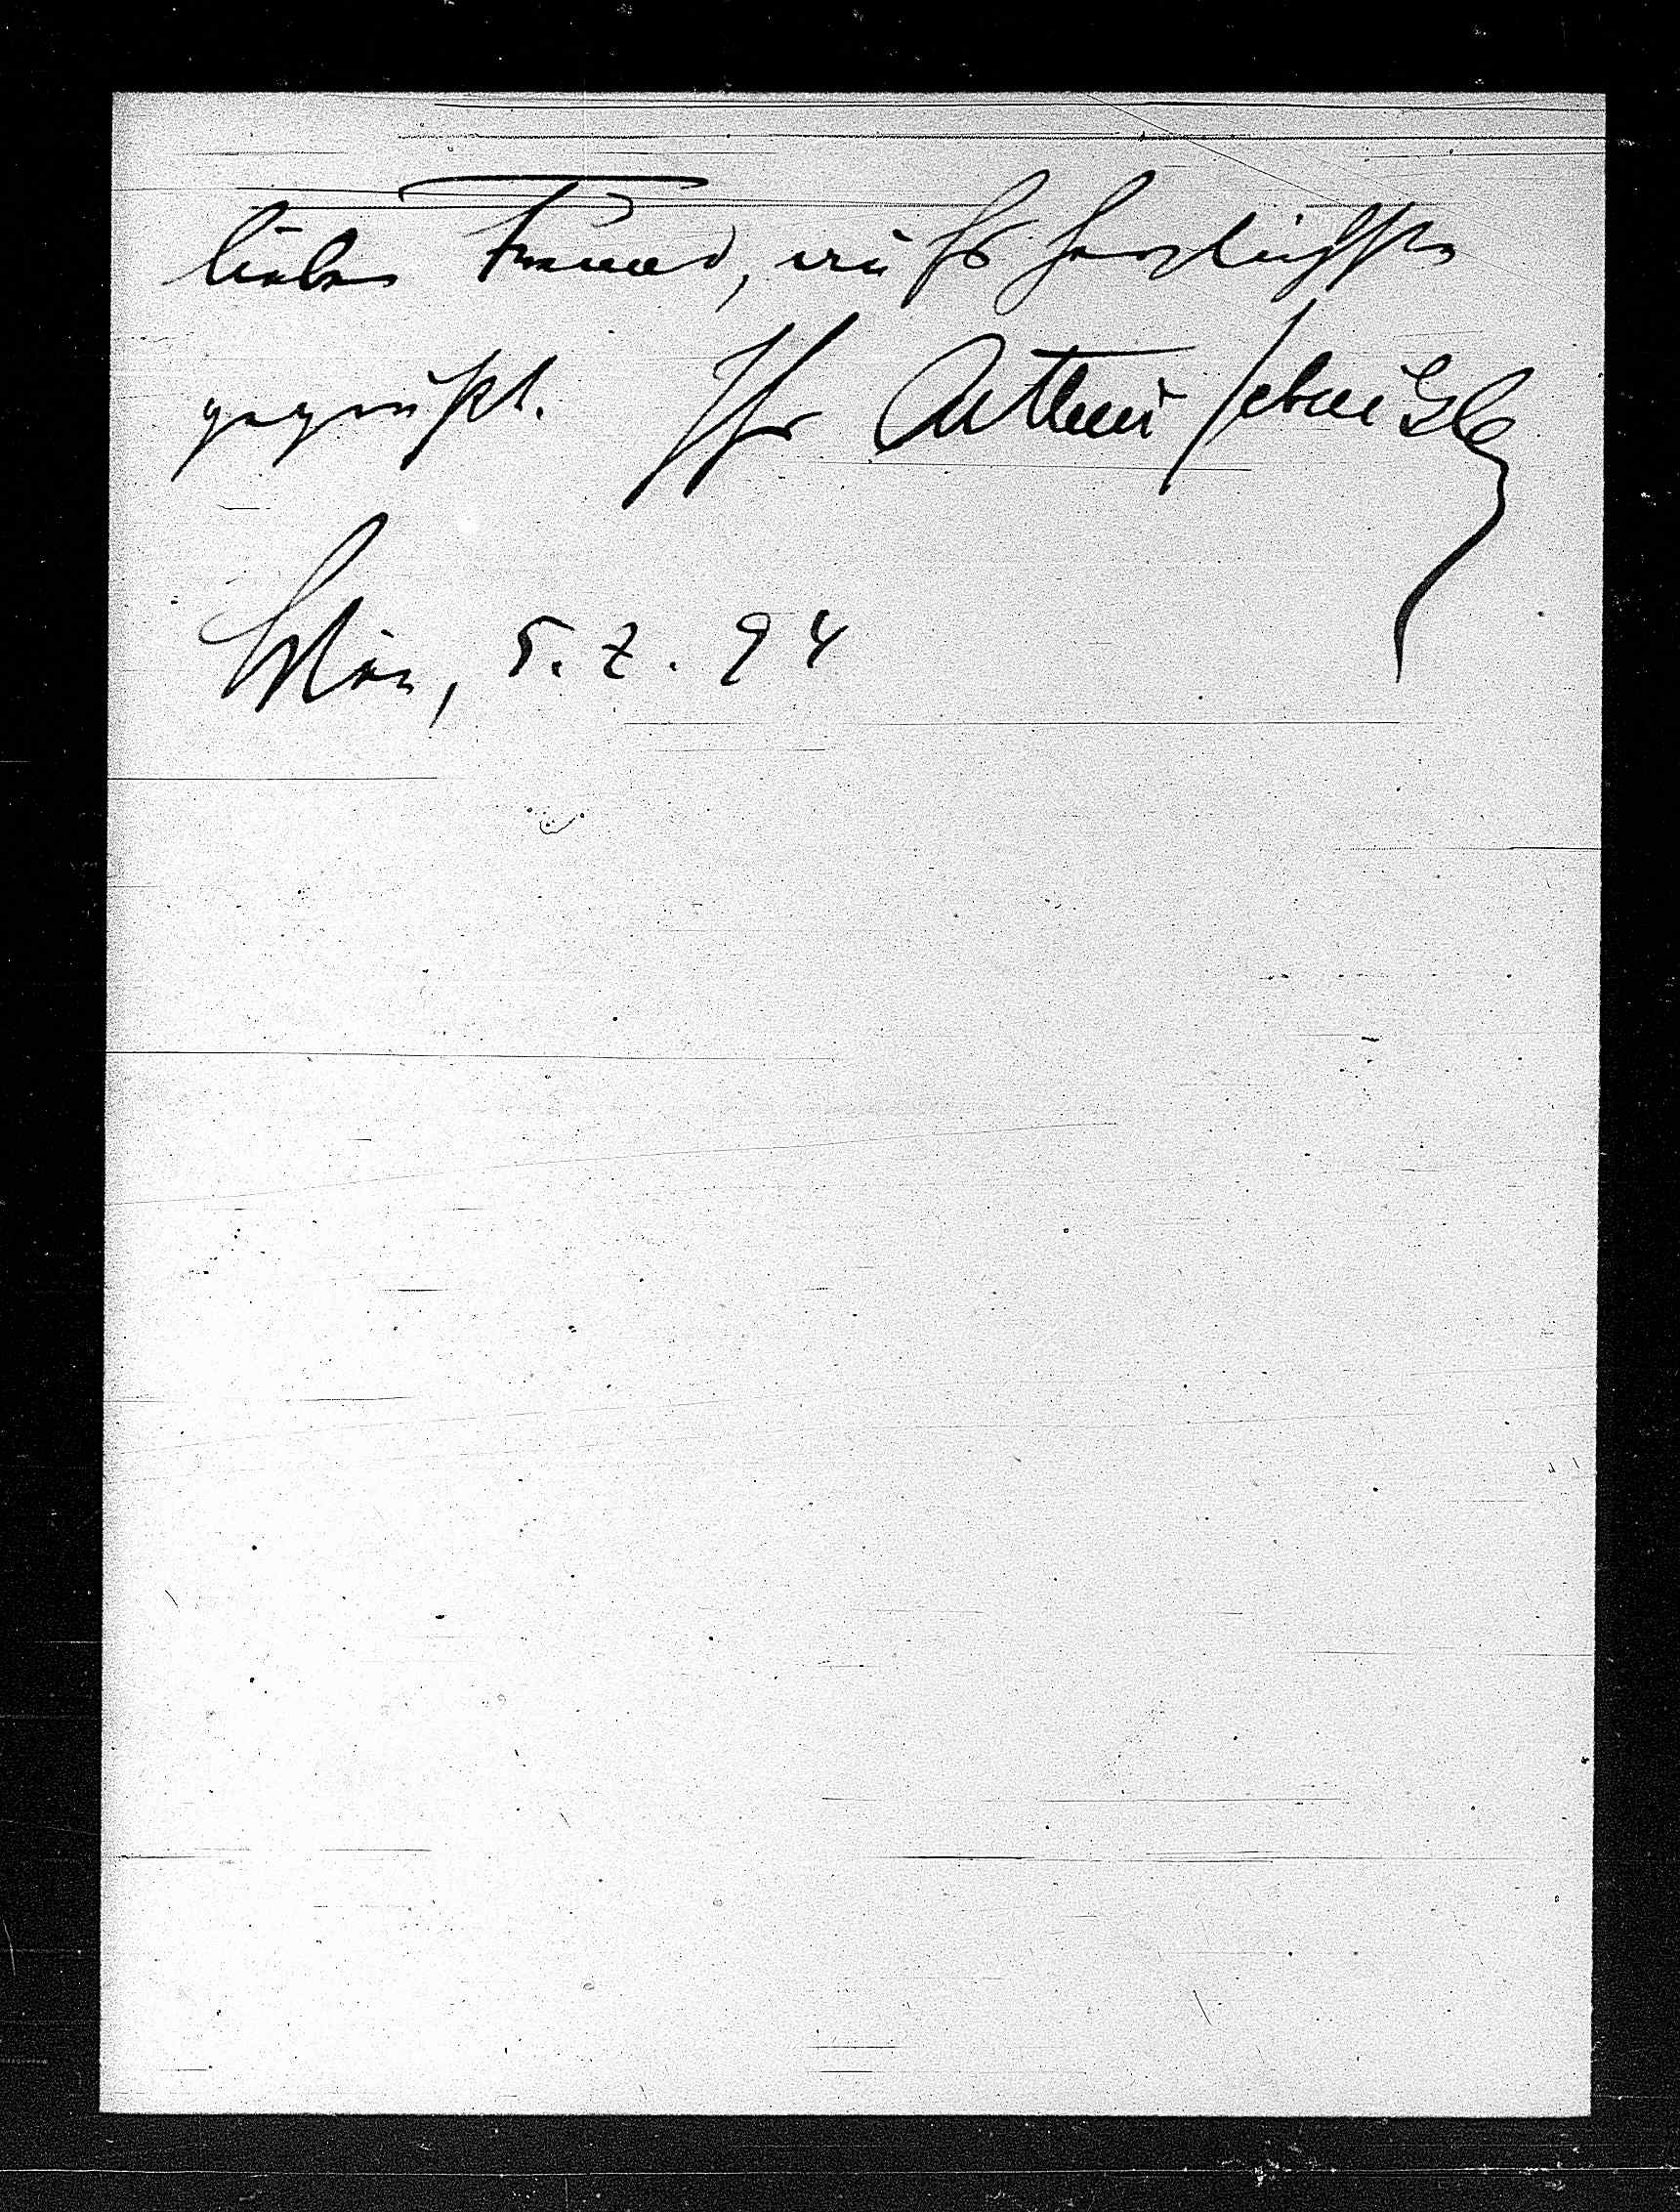 lieber Freund, aufs herzlichste
gegrüßt. Ihr Arthur Schnitzler
Wien, 5. 2. 94